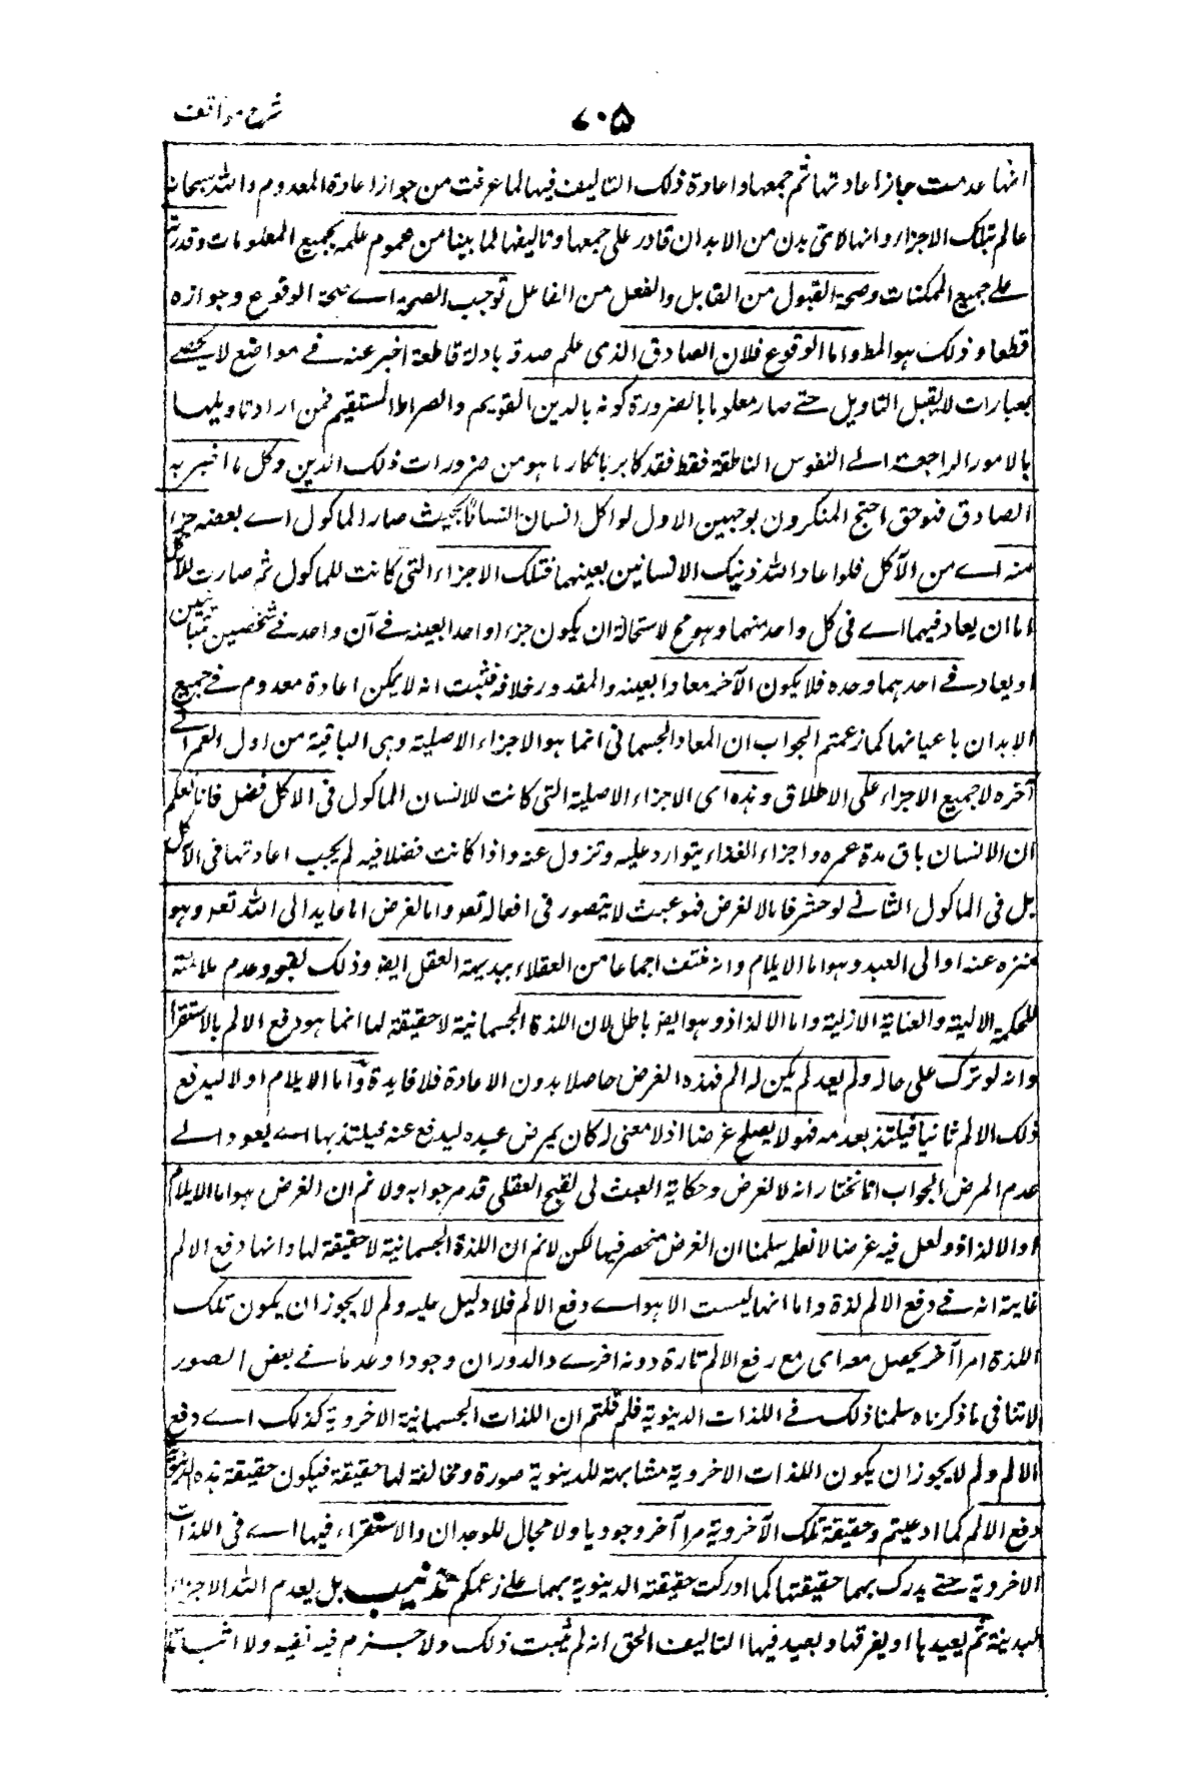 شرح مواقف
٧٠٥
انها عدمت جاز اعادتها ثم جمعها واعادة ذلك التاليف فيها لما عرفت من جواز اعادة المعدوم والله سبحانه
عالم بتلك الاجزاء وانها لاى بدن من الابدان قادر على جمعها وتاليفها لما بينا من عموم علمه بجميع المعلومات وقدرته
على جميع الممكنات وصحة القبول من القابل والفعل من الفاعل توجب الصحة اے صحة الوقوع وجوازه
قطعا وذلك هو المط واما الوقوع فلان الصادق الذى علم صدقه بادلة قاطعة اخبر عنه فے مواضع لا يحصے
بعبارات لا يقبل التاويل حتے صار معلوما بالضرورة كونه بالدين القويم والصراط المستقيم فمن اراد تاويلها
بالامور الراجعة الے النفوس الناطقة فقط فقد كابر بانكار ما هو من ضرورات ذلك الدين وكل ما اخبر به
الصادق فهو حق احتج المنكرون بوجهين الاول لو اكل انسان انسانا بحيث صار الماكول اے بعضه جزا
منه اے من الآكل فلو اعاد الله ذينك الانسانين بعينهما فتلك الاجزاء التى كانت للماكول ثم صارت للآكل
اما ان يعاد فيهما اے فى كل واحد منهما وهو مح لاستحالة ان يكون جزء واحد ابعينه فے آن واحد فے شخصين متباينين
او يعاد فے احدهما وحده فلا يكون الآخر معادا بعينه والمقدور خلافه فثبت انه لا يمكن اعادة معدوم فے جميع
الابدان باعيانها كما زعمتم الجواب ان المعاد الجسمانى انما هو الاجزاء الاصلية وهى الباقية من اول العمر الے
آخره لا جميع الاجزاء على الاطلاق وهذه اى الاجزاء الاصلية التى كانت للانسان الماكول فى الاكل فضل فانا نعلم
ان الانسان باق مدة عمره واجزاء الغذاء يتوارد عليه وتزول عنه واذا كانت فضلا فيه لم يجب اعادتها فى الآكل
بل فى الماكول الثانے لو حشر فاما لا لغرض فهو عبث لا يتصور فى افعاله تعم واما لغرض اما عايد الى الله تعم وهو
منزه عنه او الى العبد وهو اما الايلام وانه منتف اجماعا من العقلاء ببديهة العقل ايضا وذلك لقبحه وعدم ملائمته
للحكمة الالهية والعناية الازلية واما الالذاذ وهو ايضا باطل لان اللذة الجسمانية لا حقيقة لها انما هو رفع الالم بالاستقرا
وانه لو ترك على حاله ولم يعد لم يكن له الم فهذه الغرض حاصلا بدون الاعادة فلا فايدة واما الايلام اولا ليدفع
ذلك الالم ثانيا فيلتذ بعدمه فهو لا يصلح غرضا اذ لا معنى له كان يمرض عبده ليدفع عنه فيلتذ بها اے يعود الے
عدم المرض الجواب انا نختار انه لا لغرض وحكاية العبث لى لقبح العقلى قد مر جوابه ولا نم ان الغرض هو اما الايلام
او الالذاذ ولعل فيه غرضا لا نعلمه سلمنا ان الغرض منحصر فيها لكن لا نم ان اللذة الجسمانية لا حقيقة لها وانها دفع الالم
غايته انه فے دفع الالم لذة واما انها ليست الا هو اے دفع الالم فلا دليل عليه ولم لا يجوز ان يكون تلك
اللذة امرا آخر يحصل معه اى مع رفع الالم تارة دونه اخرے والدوران وجودا وعدما فے بعض الصور
لا تنافى ما ذكرناه سلمنا ذلك فے اللذات الدينوية فلم قلتم ان اللذات الجسمانية الاخروية كذلك اے دفع
الالم ولم لا يجوز ان يكون اللذات الاخروية مشابهة للدينوية صورة ومخالفة لها حقيقة فيكون حقيقة هذه الدينوية
دفع الالم كما ادعيتم وحقيقة تلك الآخروية مرا آخر وجوديا ولا مجال للوجدان والاستقراء فيها اے فى اللذات
الاخروية حتے يدرك بهما حقيقتها كما ادركت حقيقة الدينوية بهما علے زعمكم تذنيب بل يعدم الله الاجزاء
البدينة ثم يعيدها او يفرقها ويعيد فيها التاليف الحق انه لم يثبت ذلك ولا جزم فيه نفيه ولا اثباتا